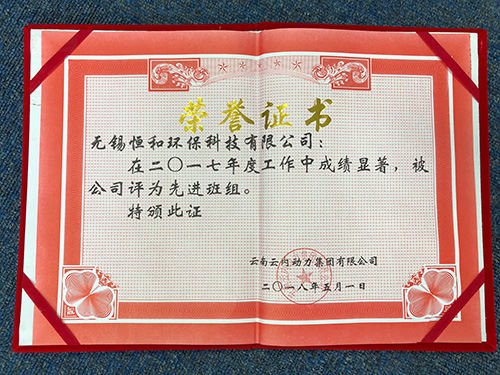 荣誉证书
无锡恒和环保科技有限公司：
在二〇一七年度工作中成绩显著，被
公司评为先进班组。
特颁此证
云南云内动力集团有限公司
二〇一八年五月一日